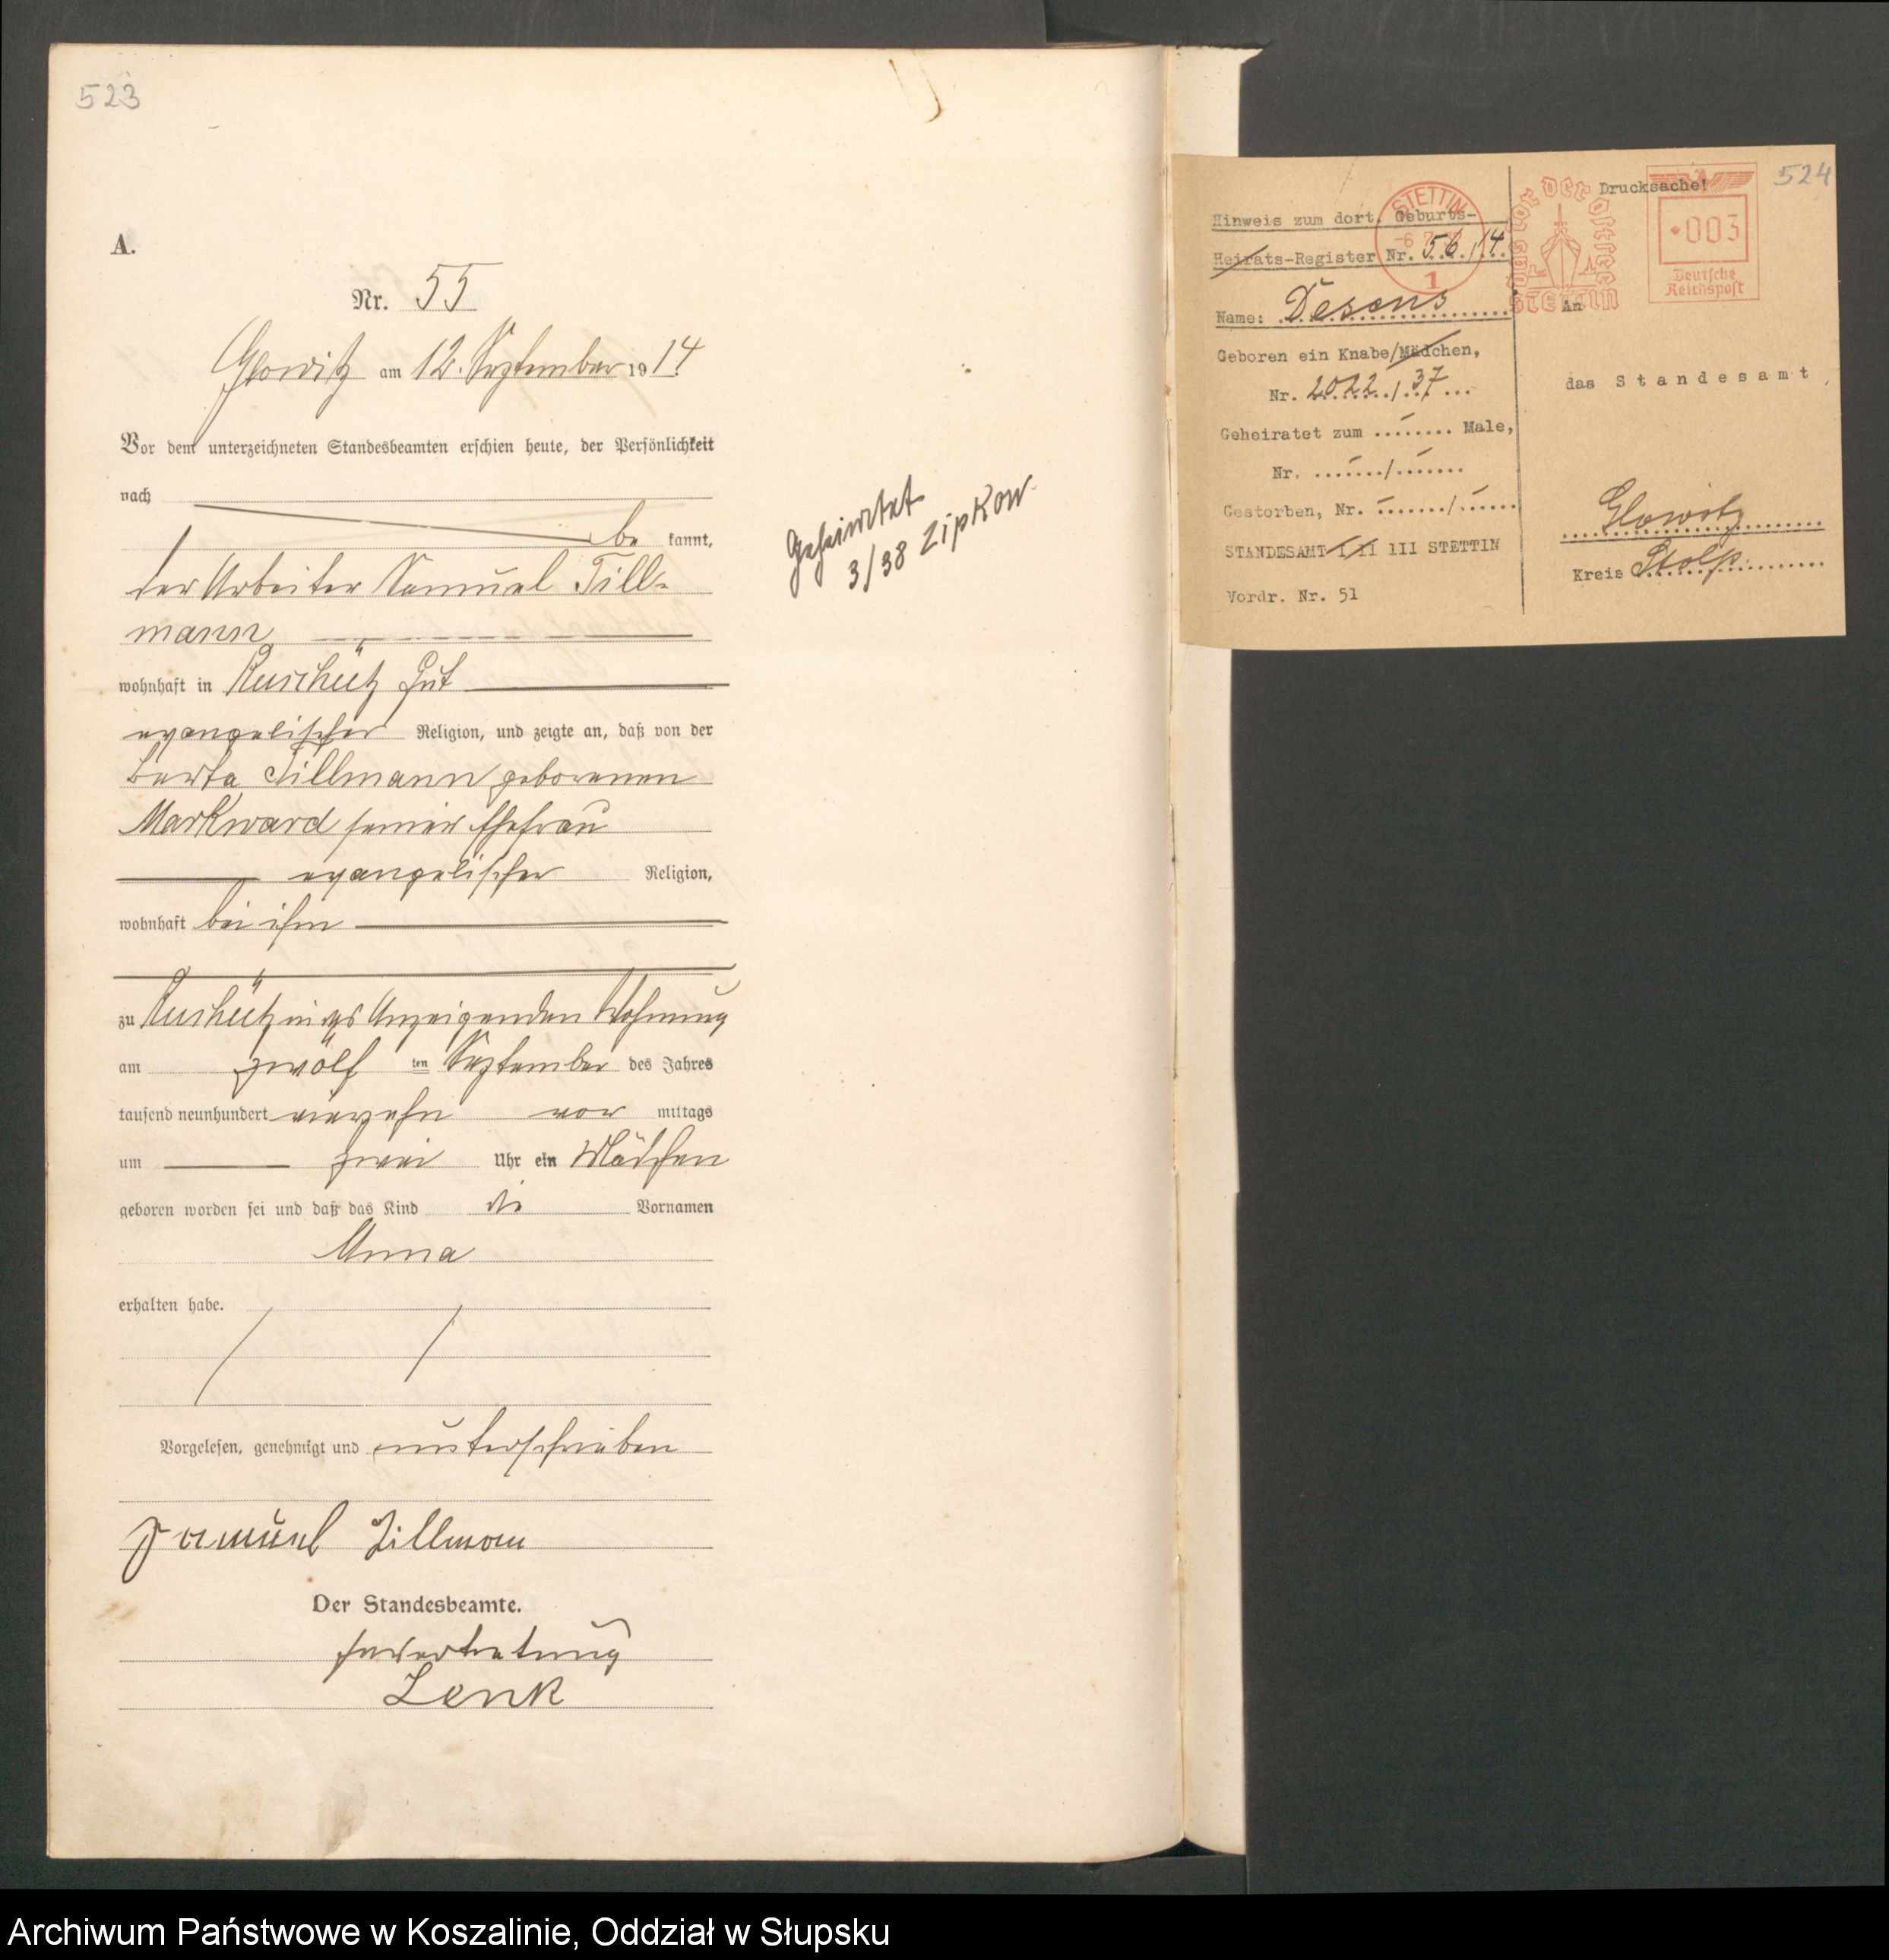 523
A.
Nr. 55
Glowitz am 12. September 1914.
Vor dem unterzeichneten Standesbeamten erschien heute, der Persönlichkeit
nach
be kannt,
der Arbeiter Samuel Till-
mann
wohnhaft in Ruschütz Gut
evangelischer Religion, und zeigte an, daß von der
Berta Tillmann geborenen
Markward seiner Ehefrau
evangelischer Religion,
wohnhaft bei ihm
zu Ruschütz in des Anzeigenden Wohnung
am zwölf ten September des Jahres
tausend neunhundert vierzehn vor mittags
um zwei Uhr ein Mädchen
geboren worden sei und daß das Kind die Vornamen
Anna
erhalten habe.
Vorgelesen, genehmigt und unterschrieben
Samuel Tillmann
Der Standesbeamte.
Lenk
Geheiratet
3/38 Zipkow
524
Hinweis zum dort. Geburts-
Heirats-Register Nr. 56/14.
Name: Desens
Geboren ein Knabe/Mädchen,
Nr. 2022/37
Geheiratet zum ........ Male,
Nr. ......./.......
Gestorben, Nr. ......./......
STANDESAMT I II III STETTIN
Vordr. Nr. 51
STETTIN
1
das Tor der Ostsee
STETTIN
Drucksache!
003
Deutsche
Reichspost
An
das Standesamt
Glowitz
Kreis Stolp.
Archiwum Państwowe w Koszalinie, Oddział w Słupsku